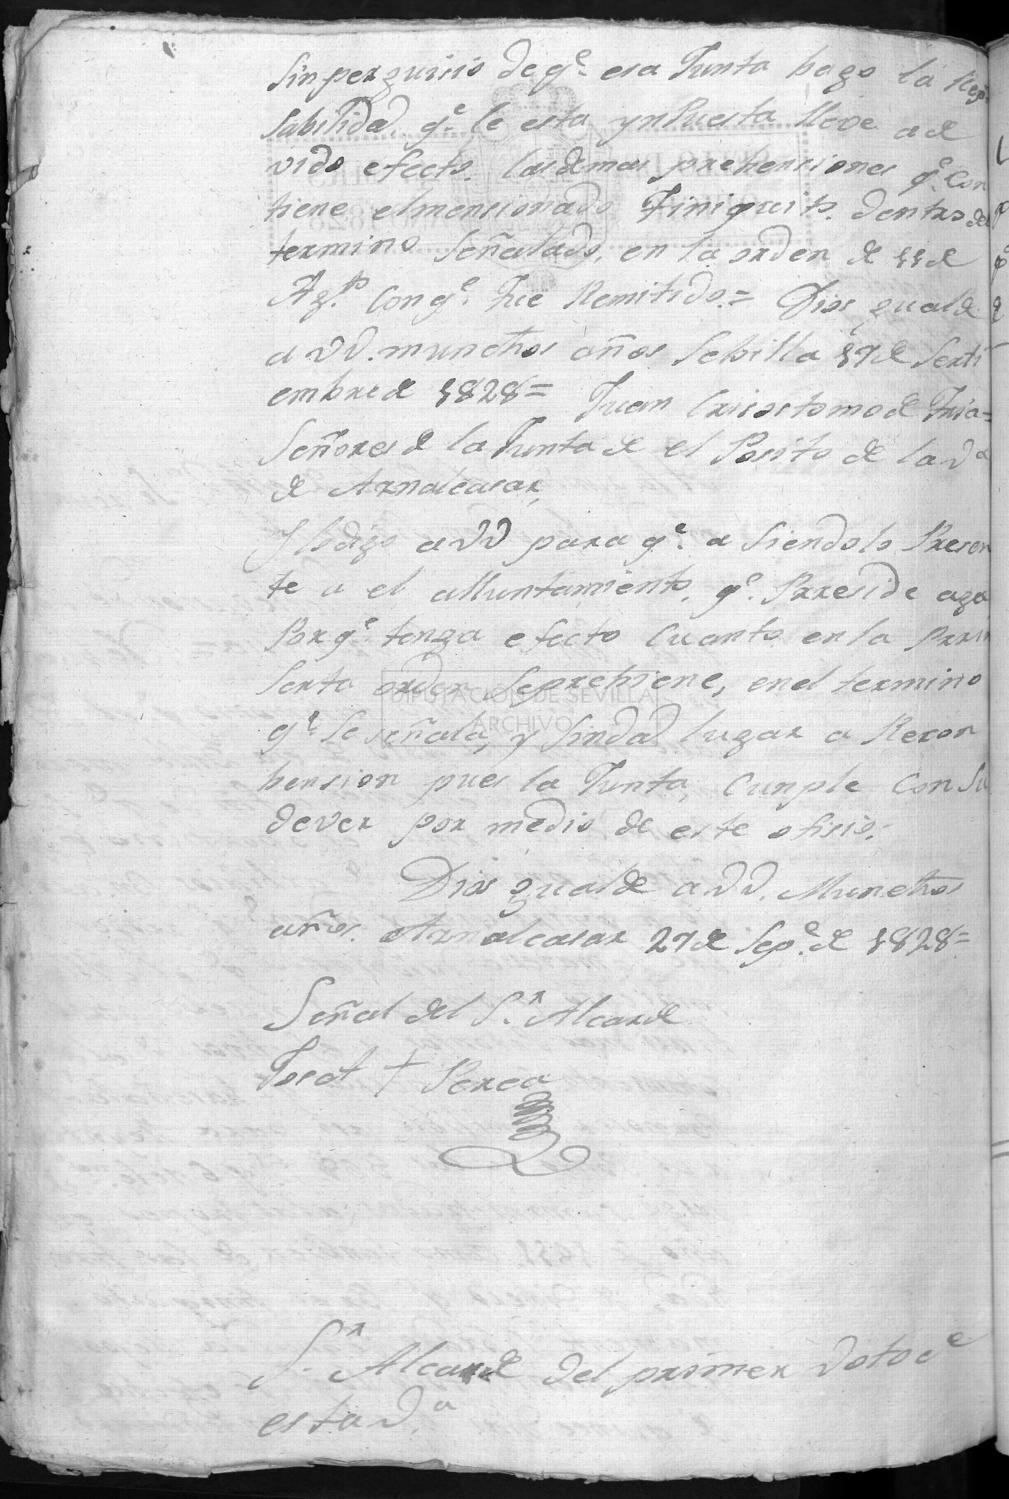 sin perguisio de qe. esa Junta bago la Resp
sabilidad qe. le esta ynpuesta lleve a de
vido efecto. las demas prehensiones qe. con
tiene el mensionado Finiquito. dentro del
termino señalado, en la orden de 11 de
Agto. con qe. fue Remitido.= Dios gualde
a VV. munchos años Sebilla 17 de Setti
embre de 1828= Juan Crisostomo de Fria=
Señores de la Junta de el Posito de la Va
de Aznalcasar,
Y lo digo a VV para qe. asiendolo Presen
te a el alluntamiento. qe. Preeside aga
Por qe. tenga efecto cuanto en la Prrin
serta orden seprehiene, en el termino
qe. se señala, y sin dad lugar a Recon
bension pues la Junta, cunple con su
dever por medio de este ofisio.
Dios gualde a VV. Munchos
años. Aznalcasar 27 de Sepe. de 1828=
Señal del Sr. Alcarde
Josct + Perea
Sr. Alcarde del primer voto de
esta Va.
DIPUTACIÓN DE SEVILLA
ARCHIVO